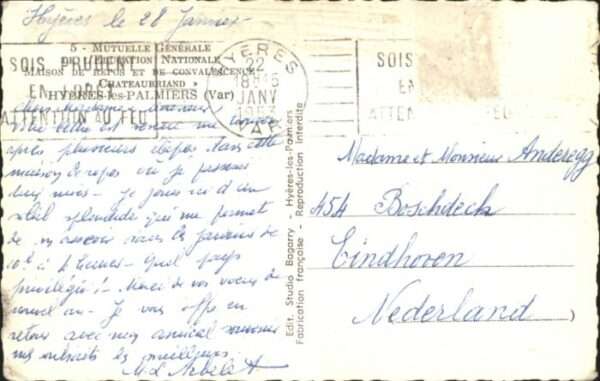 Hyères le 28 Janvier
5 - MUTUELLE GÉNÉRALE
DE L'ÉDUCATION NATIONALE
MAISON DE REPOS ET DE CONVALESCENCE
CHATEAUBRIAND
HYÈRES-les-PALMIERS (Var)
SOIS PRUDENT
EN FORET
ATTENTION AU FEU
HYERES
22
8H15
JANV
VAR
SOIS
EN
ATTEN
Chers Madame et Monsieur
Votre lettre est venue me trouver
après plusieurs étapes dans cette
maison de repos où je passerai
deux mois - Je jouis ici d'un
soleil splendide qui me permet
de m'asseoir sous les
10h à Quel pays
privilégié ! Merci de vos voeux de
nouvel an - Je vous offre en
retour avec mon amical souvenir
mes souhaits les meilleurs.
Edit. Studio Bagarry - Hyères-les-Palmiers
Fabrication française - Reproduction interdite
Madame et Monsieur Anderegg
45A Boschdeck
Eindhoven
Nederland